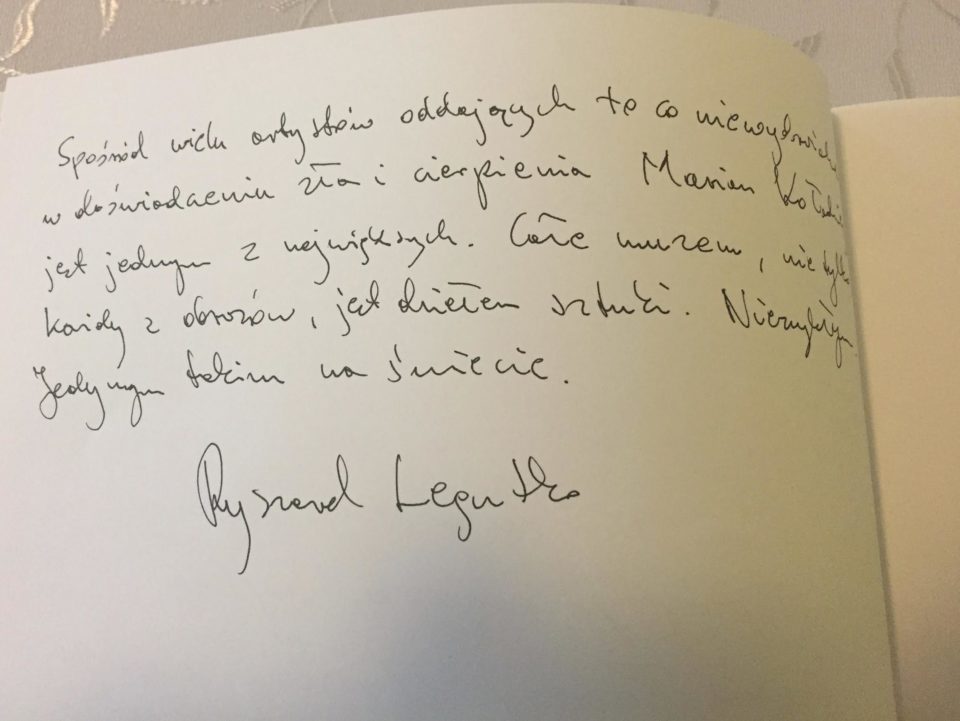 Spośród wielu artystów oddających to co niewyobrażalne
w doświadczeniu zła i cierpienia Marian Kołodziej
jest jednym z największych. Całe muzeum, nie tylko
każdy z obrazów, jest dziełem sztuki. Niezwykłym.
Jedynym takim na świecie.
Ryszard Legutko